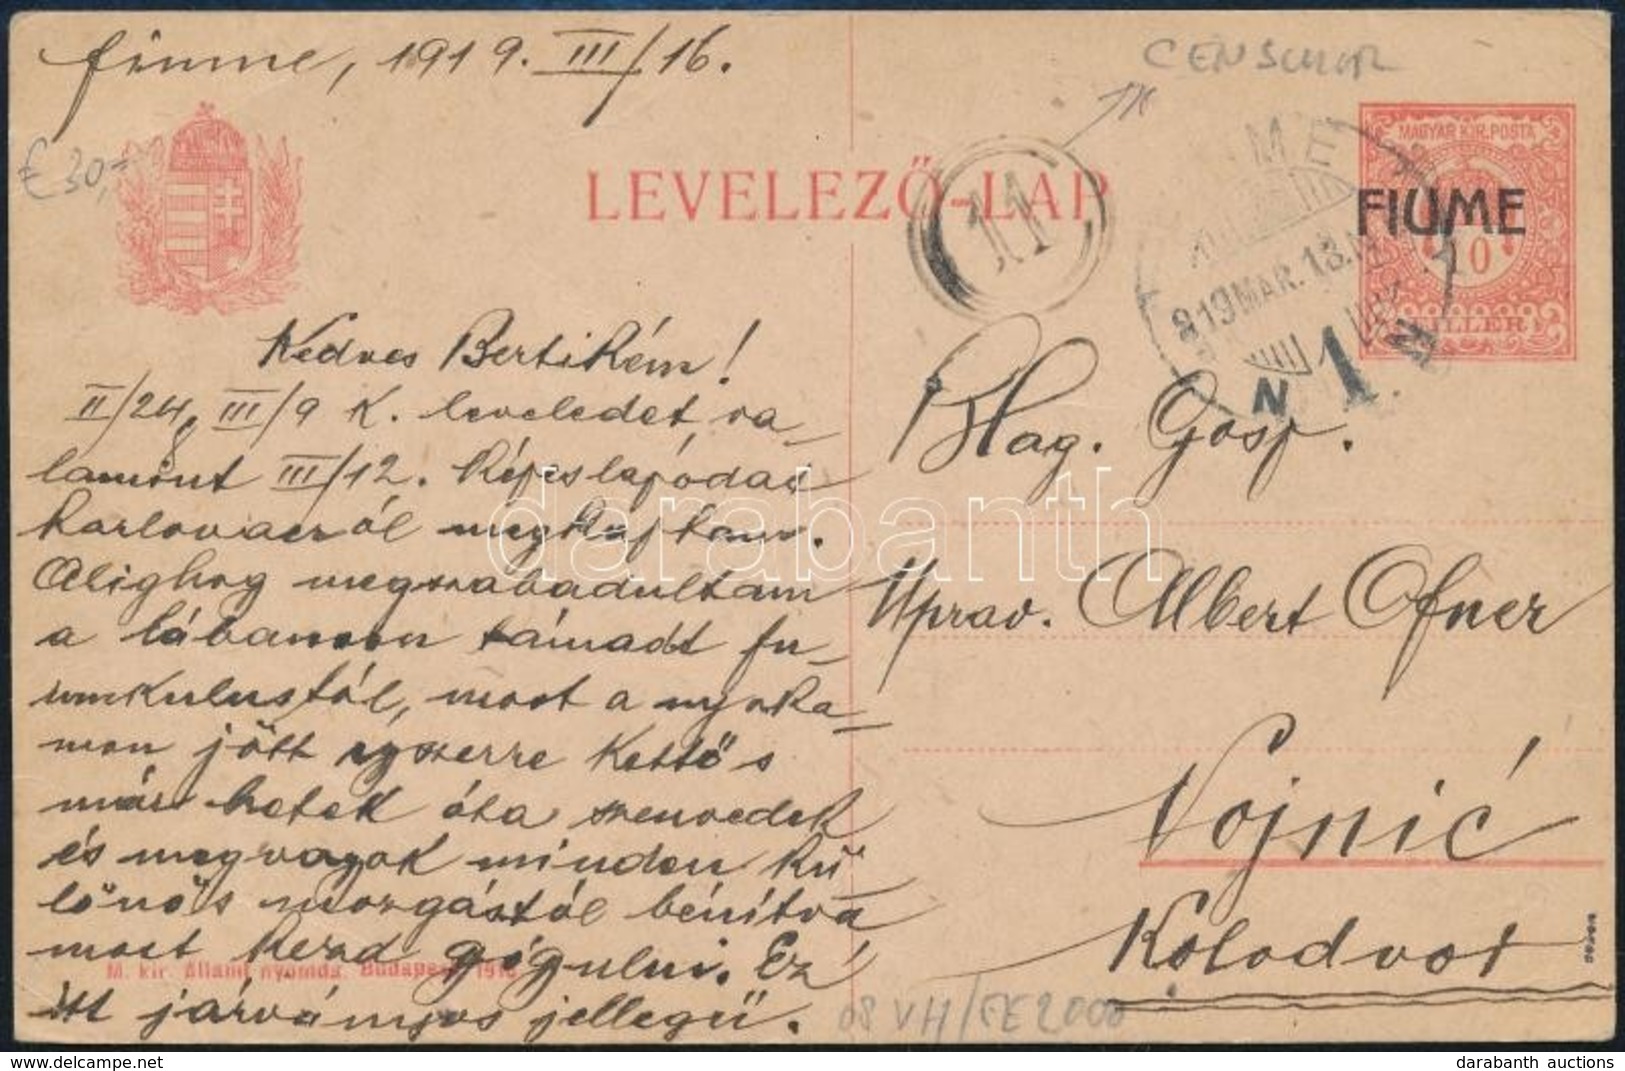 CENSCHOR
Fiume, 1919. III/16.
€ 30,-
MAGYAR KIR. POSTA
FIUME
10
FILLER
LEVELEZŐ-LAP
11
919 MAR. 18.
N 1
Kedves BertiKém!
II/24, III/9 K. leveledet, va-
lamint III/12. Képeslapódat
Karlovacról megkaptam.
Alighog megszabadultam
a lábamon támadt fu-
runkulustól, most a nyaka-
mon jött egyszerre kettő s
már hetek óta szenvedek
és megvagyok minden kü-
lönös mozgástól bénítva
most kezd gyógyulni. Ez
itt járványos jellegü.
Blag. Gosp.
Uprav. Albert Ofner
Vojnić
Kolodvor
M. kir. állami nyomda. Budapest
08 VH/FE2000
darabanth
www.darabanth.com
darabanth auctions